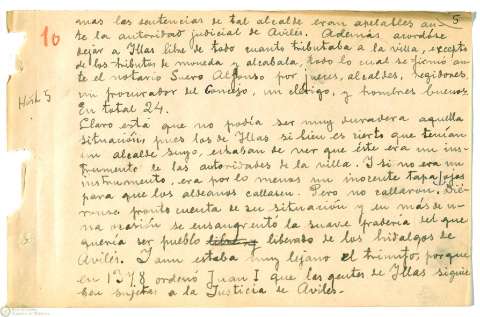 5
10
mas las sentencias de tal alcalde eran apelables an-
te la autoridad judicial de Avilés. Además, acordóse
dejar a Illas libre de todo cuanto tributaba a la villa, excepto
de los tributos de moneda y alcabala, todo lo cual se firmó an-
te el notario Suero Alfonso por jueces, alcaldes, regidores,
un procurador del Concejo, un clérigo, y hombres buenos.
En total 24.
Claro está que no podía ser muy duradera aquella
situación, pues los de Illas si bien es cierto que tenían
un alcalde suyo, echaban de ver que éste era un ins-
trumento de las autoridades de la villa. Y si no era un
instrumento, era por lo menos un inocente tapaojos
para que los aldeanos callasen. Pero no callaron. Dié-
ronse pronto cuenta de su situación y en más de u-
na ocasión se ensangrentó la suave pradería del que
quería ser pueblo liberado de los hidalgos de
Avilés. Y aun estaba muy lejano el triunfo, porque
en 1378 ordenó Juan I que las gentes de Illas siguie-
sen sujetas a la Justicia de Avilés.-